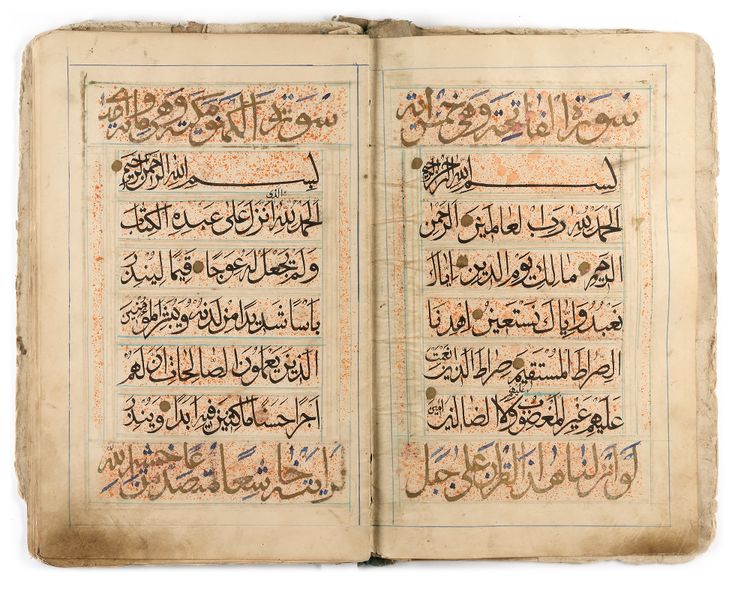 سورة الفاتحة وهي خمس اية
بسم الله الرحمن الرحيم
الحمد لله رب العالمين الرحمن
الرحيم مالك يوم الدين اياك
نعبد واياك نستعين اهدنا
الصراط المستقيم صراط الذين انعمت
عليهم غير المغضوب عليهم ولا الضالين امين
لو انزلنا هذا القران على جبل
سورة الكهف مكية وهي مائة
بسم الله الرحمن الرحيم
الحمد لله الذى انزل على عبده الكتاب
ولم يجعل له عوجا قيما لينذر
باسا شديدا من لدنه ويبشر المؤمنين
الذين يعملون الصالحات ان لهم
اجرا حسنا ماكثين فيه ابدا وينذر
لرايته خاشعا متصدعا من خشية الله